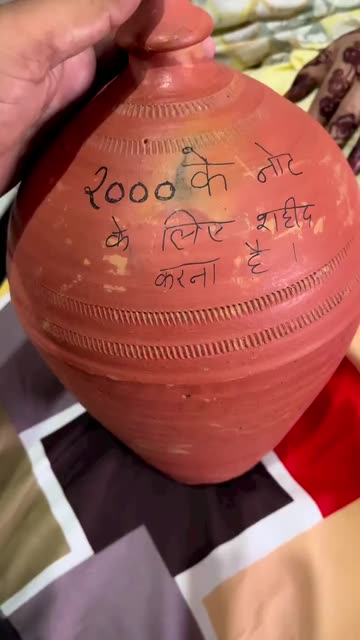 २००० के नोट
के लिए शहीद
करना है ।